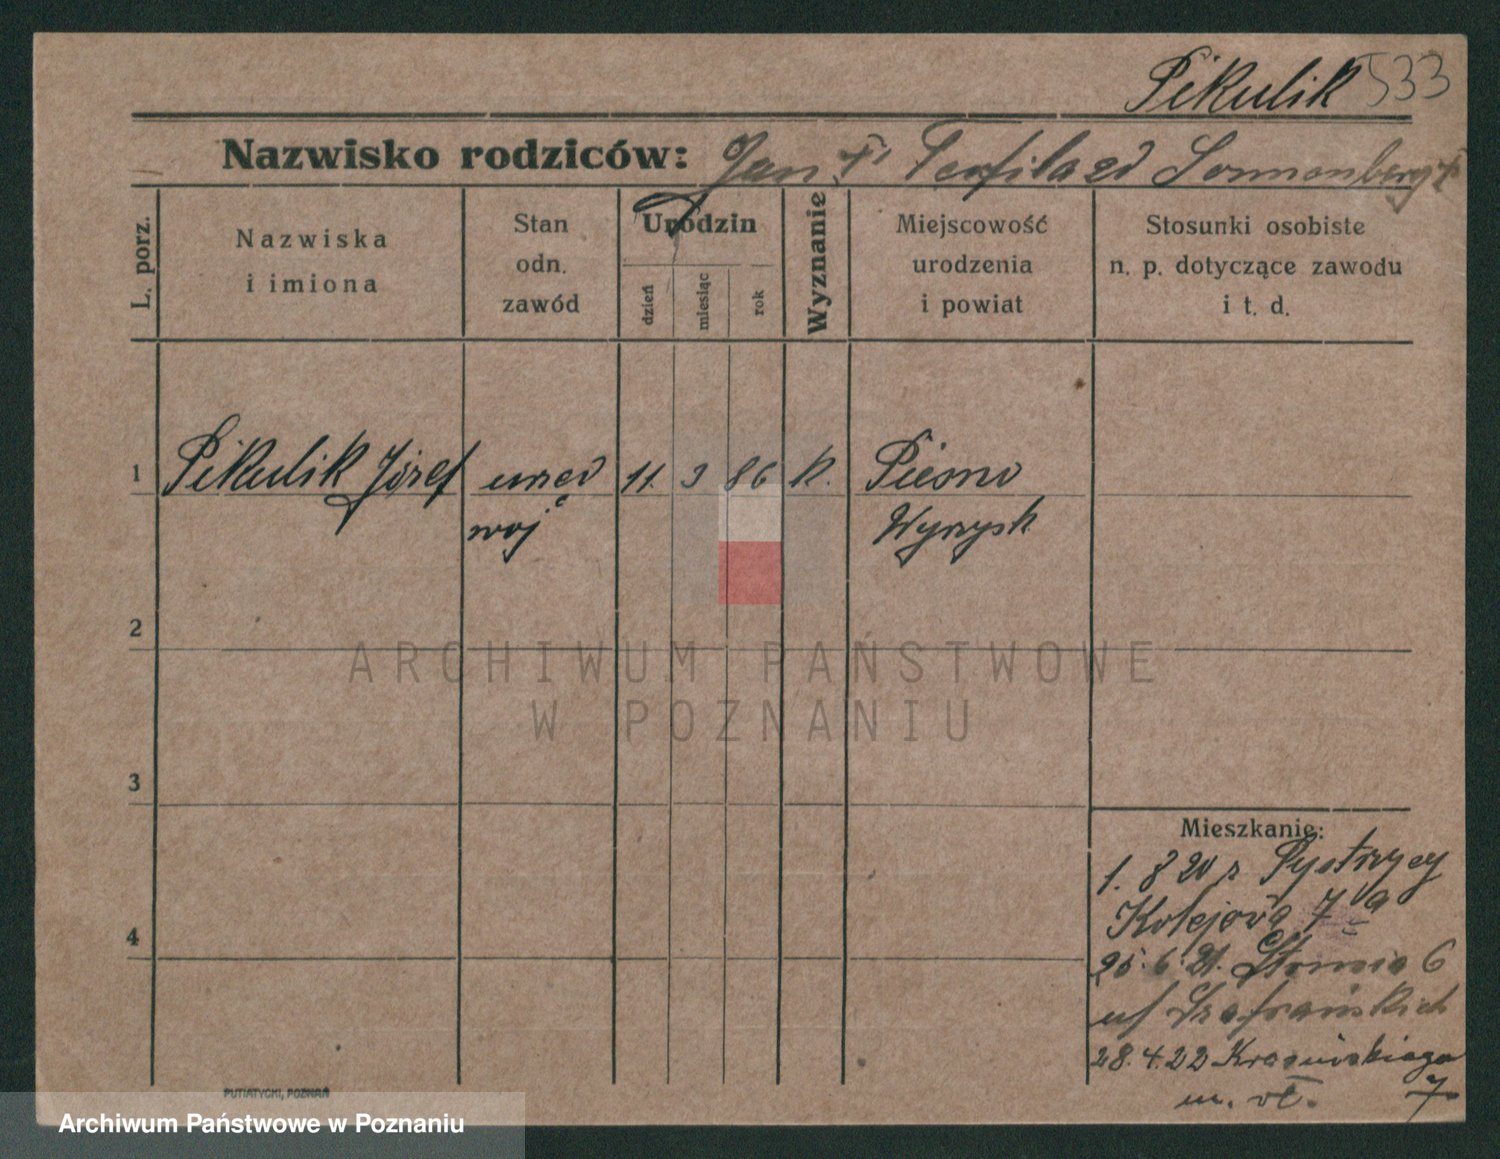 Pikulik 533
Nazwisko rodziców: Jan † Teofila zd Sonnenberg †
L. porz.
Nazwiska
i imiona
Stan
odn.
zawód
Urodzin
dzień
miesiąc
rok
Wyznanie
Miejscowość
urodzenia
i powiat
Stosunki osobiste
n. p. dotyczące zawodu
i t. d.
1 Pikulik Józef urzęd 11. 3 86 k. Piesno
woj Wyrzysk
2
ARCHIWUM PAŃSTWOWE
W POZNANIU
3
4
Mieszkanie:
1. 8 20 z Bystrzycy
Kolejowa 7
25. 6. 21. Słonecz 6
uf Szafrańskich
28. 4. 22 Krasińskiego
7
PUTIATYCKI, POZNAŃ
Archiwum Państwowe w Poznaniu